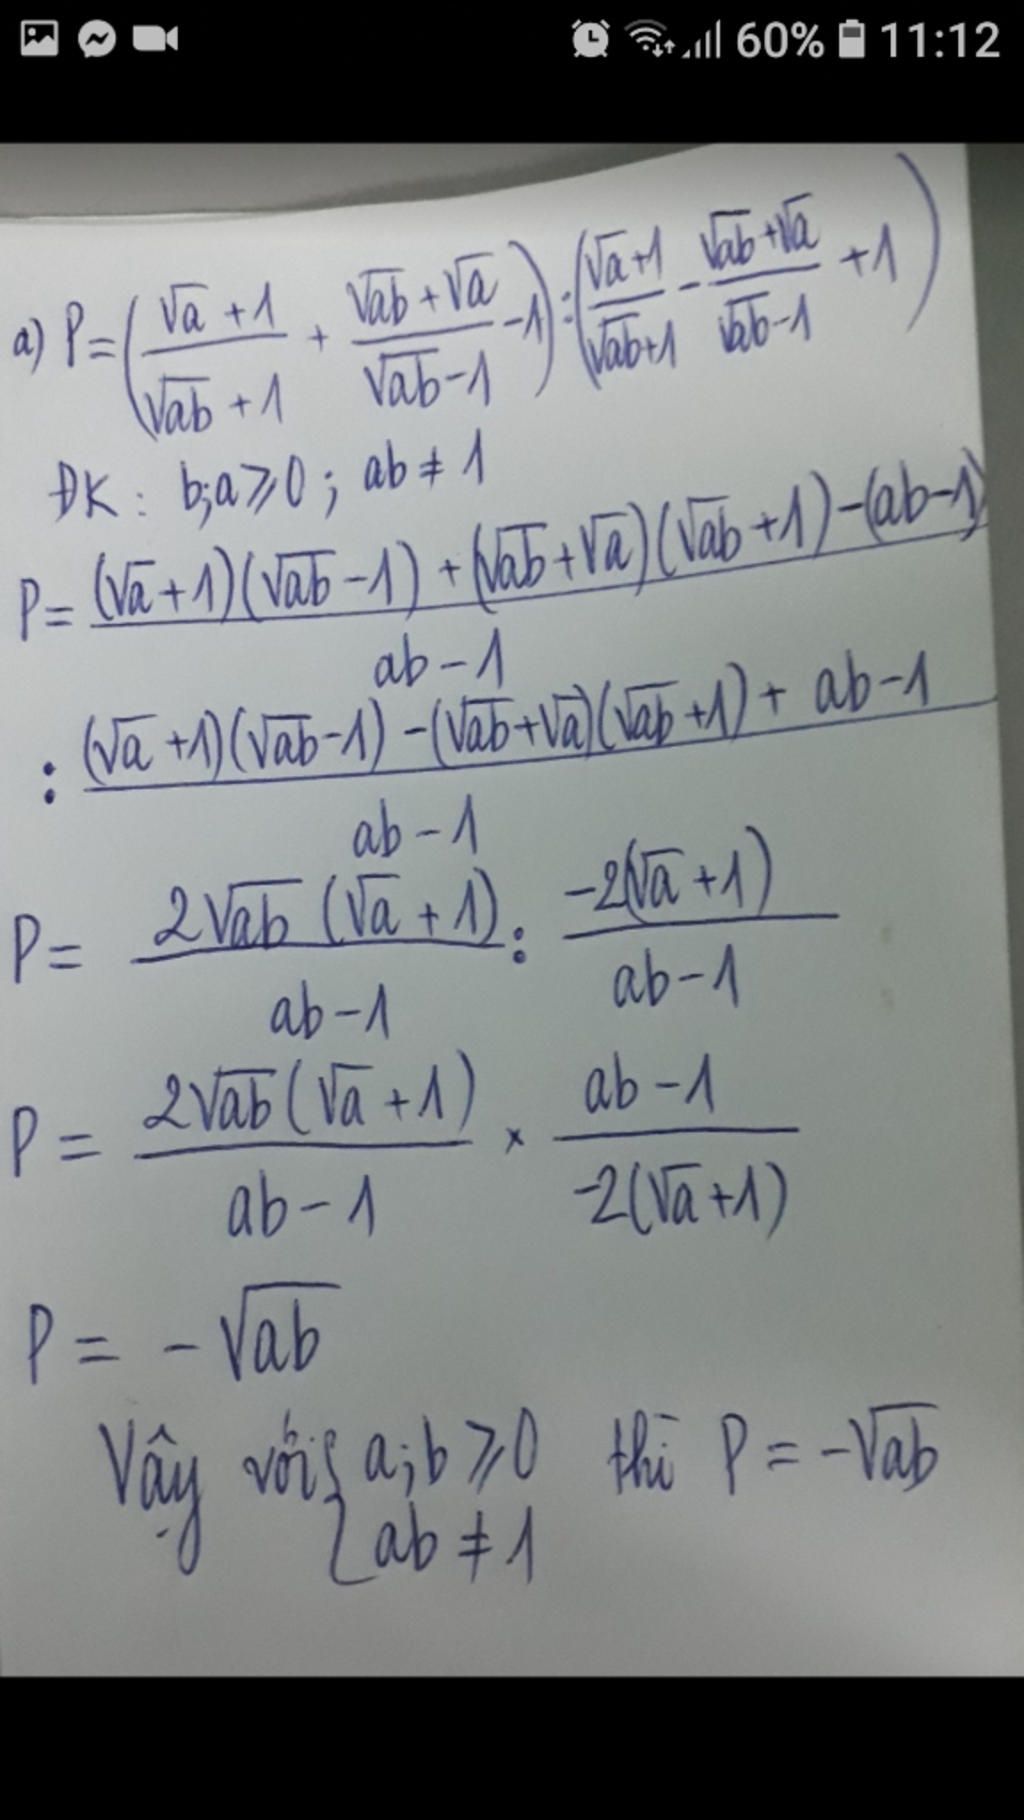 60% 11:12
a) P = ( (√a + 1)/(√ab + 1) + (√ab + √a)/(√ab - 1) - 1 ) : ( (√a + 1)/(√ab + 1) - (√ab + √a)/(√ab - 1) + 1 )
ĐK : b;a ⩾ 0 ; ab ≠ 1
P = ((√a + 1)(√ab - 1) + (√ab + √a)(√ab + 1) - (ab - 1))/(ab - 1)
: ((√a + 1)(√ab - 1) - (√ab + √a)(√ab + 1) + ab - 1)/(ab - 1)
P = (2√ab (√a + 1))/(ab - 1) : (-2(√a + 1))/(ab - 1)
P = (2√ab (√a + 1))/(ab - 1) × (ab - 1)/(-2(√a + 1))
P = - √ab
Vậy với { a;b ⩾ 0 thì P = -√ab
ab ≠ 1